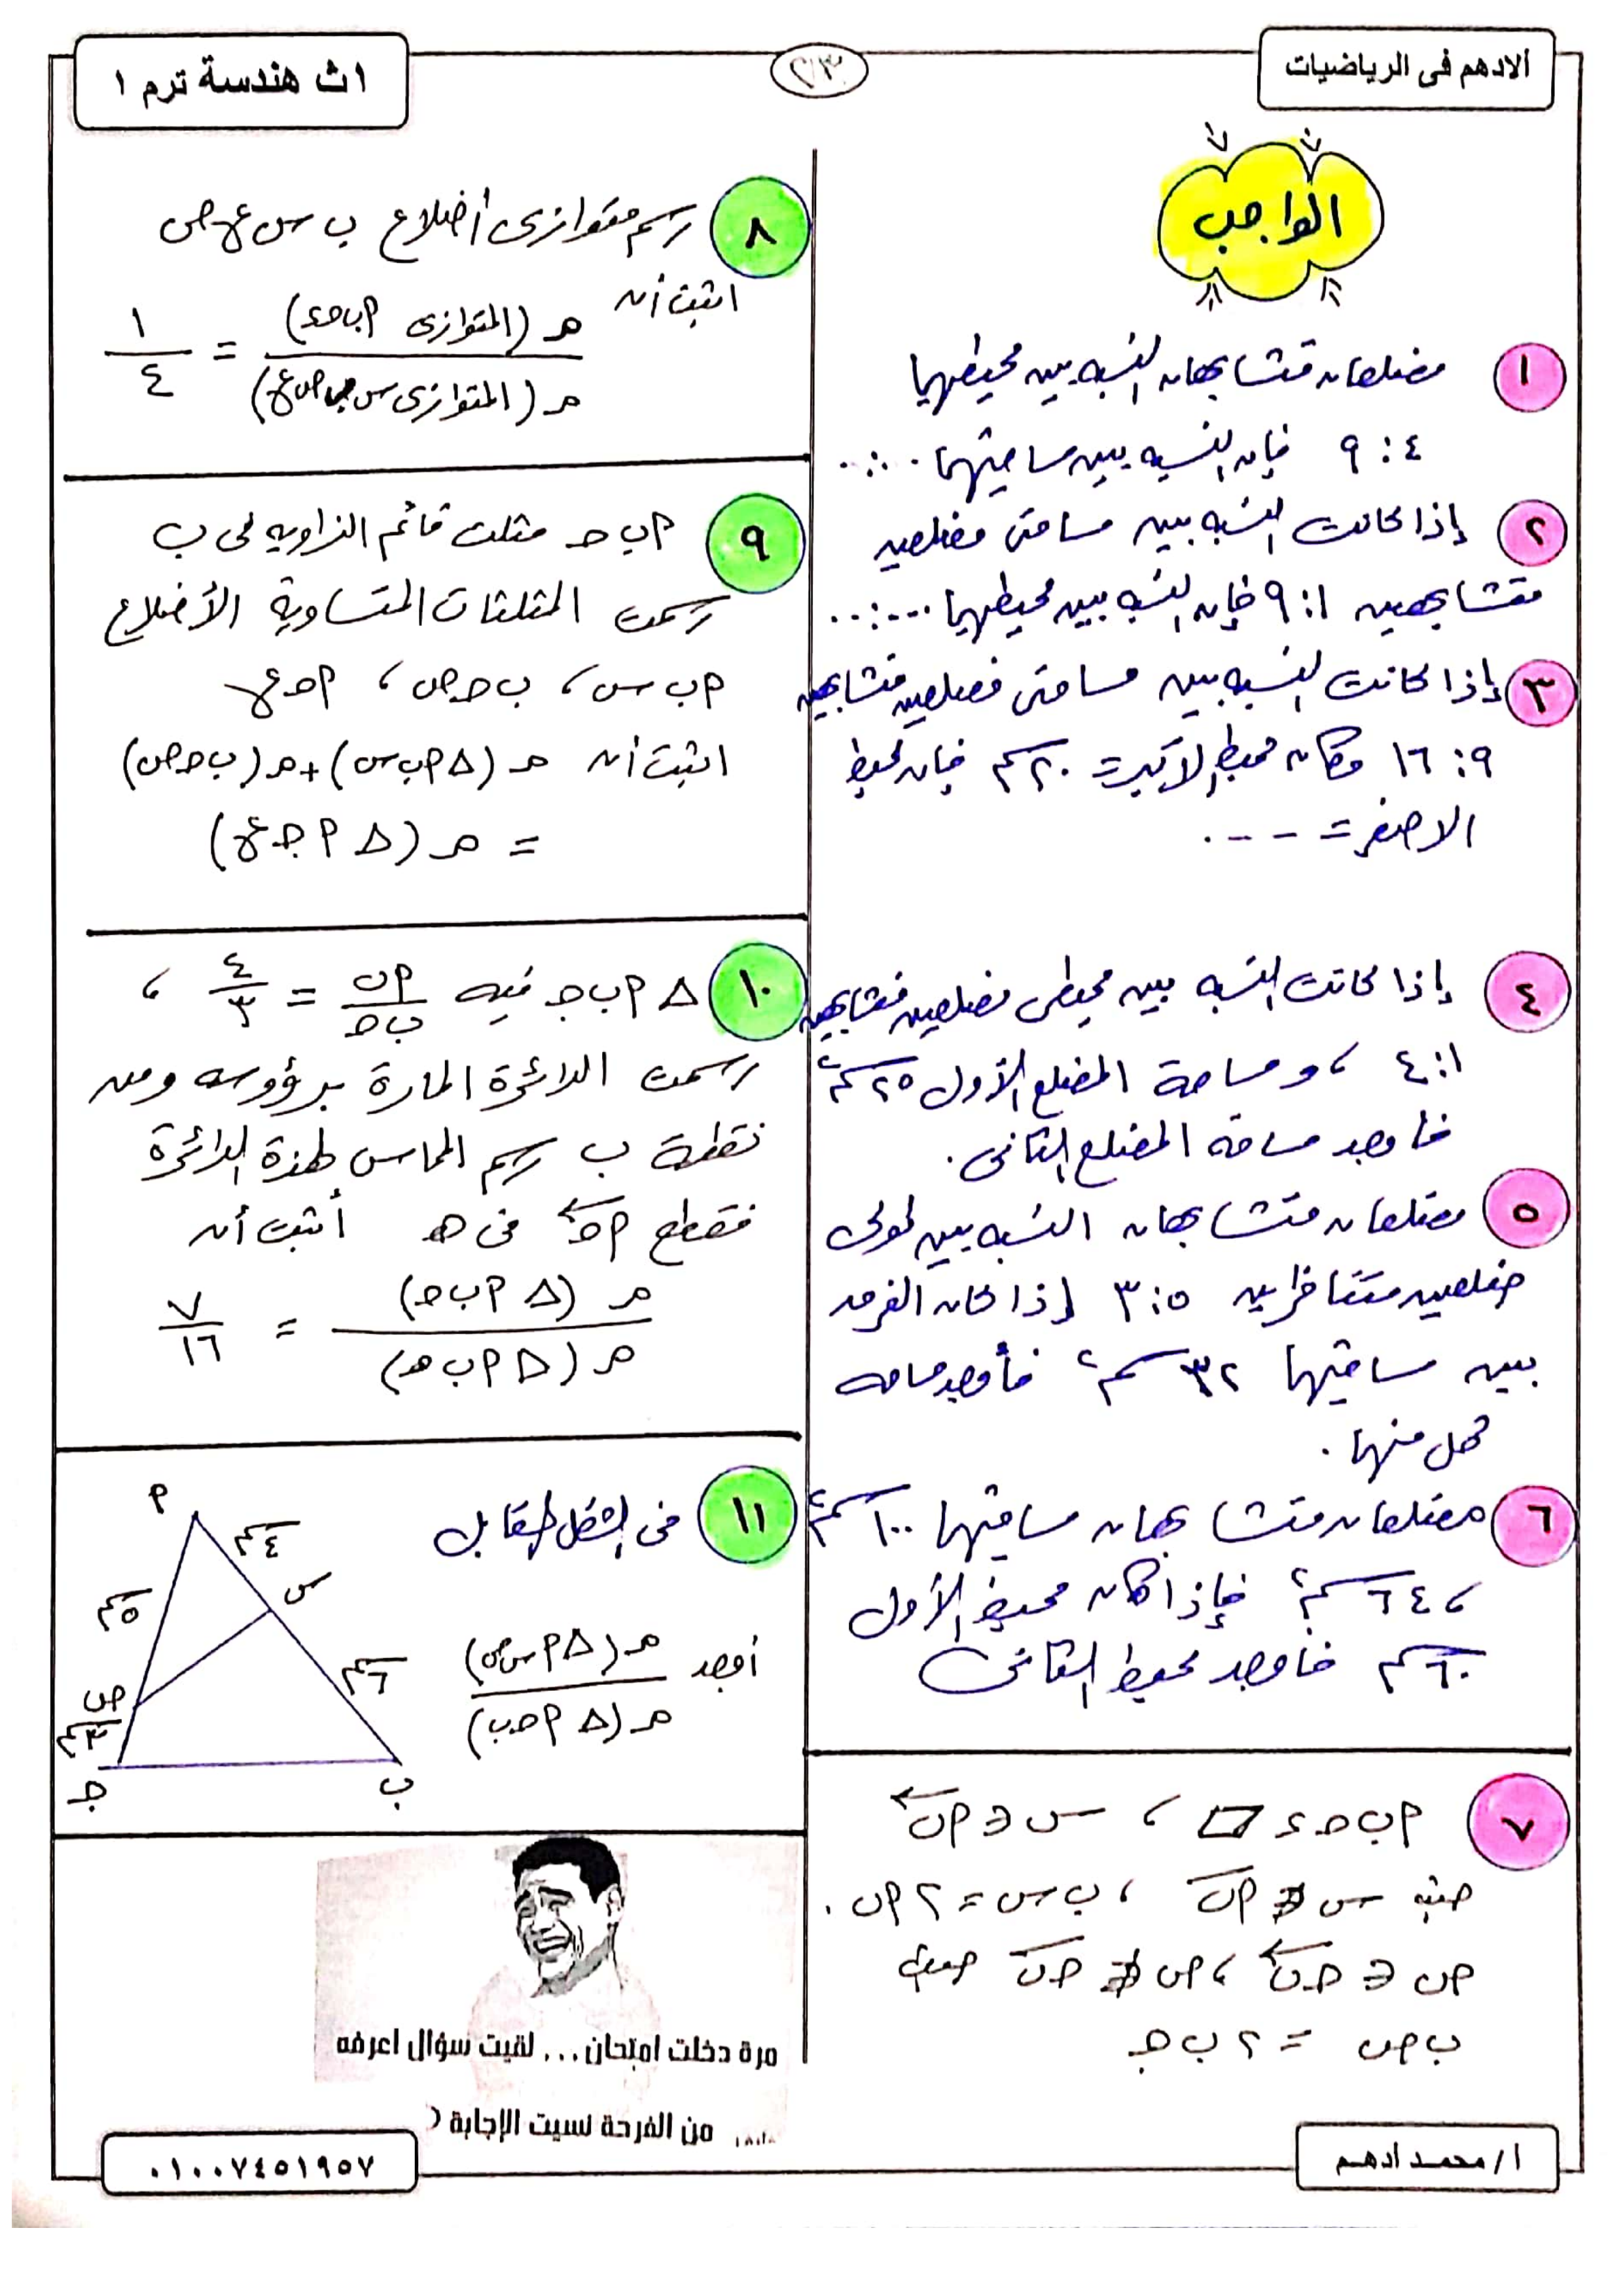 الادهم فى الرياضيات
٢١٣
١ث هندسة ترم ١
الواجب
١ مضلعان متشابهان النسبه بين محيطيهما
٤ : ٩ فإن النسبه بين مساحتيهما ..:..
٢ إذا كانت النسبه بين مساحتى مضلعين
متشابهين ١ : ٩ فإن النسبه بين محيطيهما ...:..
٣ إذا كانت النسبه بين مساحتى مضلعين متشابهين
٩ : ١٦ وكان محيط الأكبر = ٢٠سم فإن محيط
الاصغر = - - - .
٤ إذا كانت النسبه بين محيطى مضلعين متشابهين
١ : ٤ ، ومساحة المضلع الأول ٢٥سم٢
فأوجد مساحة المضلع الثانى .
٥ مضلعان متشابهان النسبه بين طولى
ضلعين متناظرين ٥ : ٣ إذا كان الفرق
بين مساحتيهما ٣٢سم٢ فأوجد مساحه
كل منهما .
٦ مضلعان متشابهان مساحتيهما ١٠٠سم٢
، ٦٤سم٢ فإذا كان محيط الأول
٦٠سم فأوجد محيط الثانى
٧ P ب حـ ء ▱ ، س ∈ P ب
حيث س ∉ P ب ، ب س = ٢ P ب .
ص ∈ حـ ب ، ص ∉ حـ ب حيث
ب ص = ٢ ب جـ
٨ رسم متوازى أضلاع ب س ع ص
اثبت أن م (المتوازى P ب حـ ء) / م (المتوازى س ب ص ع) = ١/٤
٩ P ب حـ مثلث قائم الزاويه فى ب
رسمت المثلثات المتساوية الأضلاع
P ب س ، ب حـ ص ، P حـ ع
اثبت أن م (Δ P ب س) + م (ب حـ ص)
= م (Δ P جـ ع)
١٠ Δ P ب جـ فيه P ب / ب حـ = ٤/٣ ،
رسمت الدائرة المارة برؤوسه ومن
نقطة ب رسم المماس لهذة الدائرة
فقطع P حـ فى هـ أثبت أن
م (Δ P ب حـ) / م (Δ P ب هـ) = ٧/١٦
١١ فى الشكل المقابل
أوجد م (Δ P س ص) / م (Δ P حـ ب)
P
٤سم
س
٥سم
٦سم
ص
٣سم
جـ
ب
مرة دخلت امتحان ... لقيت سؤال اعرفه
من الفرحة نسيت الإجابة (
٠١٠٠٧٤٥١٩٥٧
ا/ محمـد أدهـم